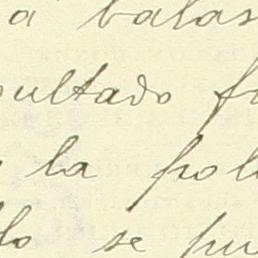 a balas
sultado f
la pol
lo se pu